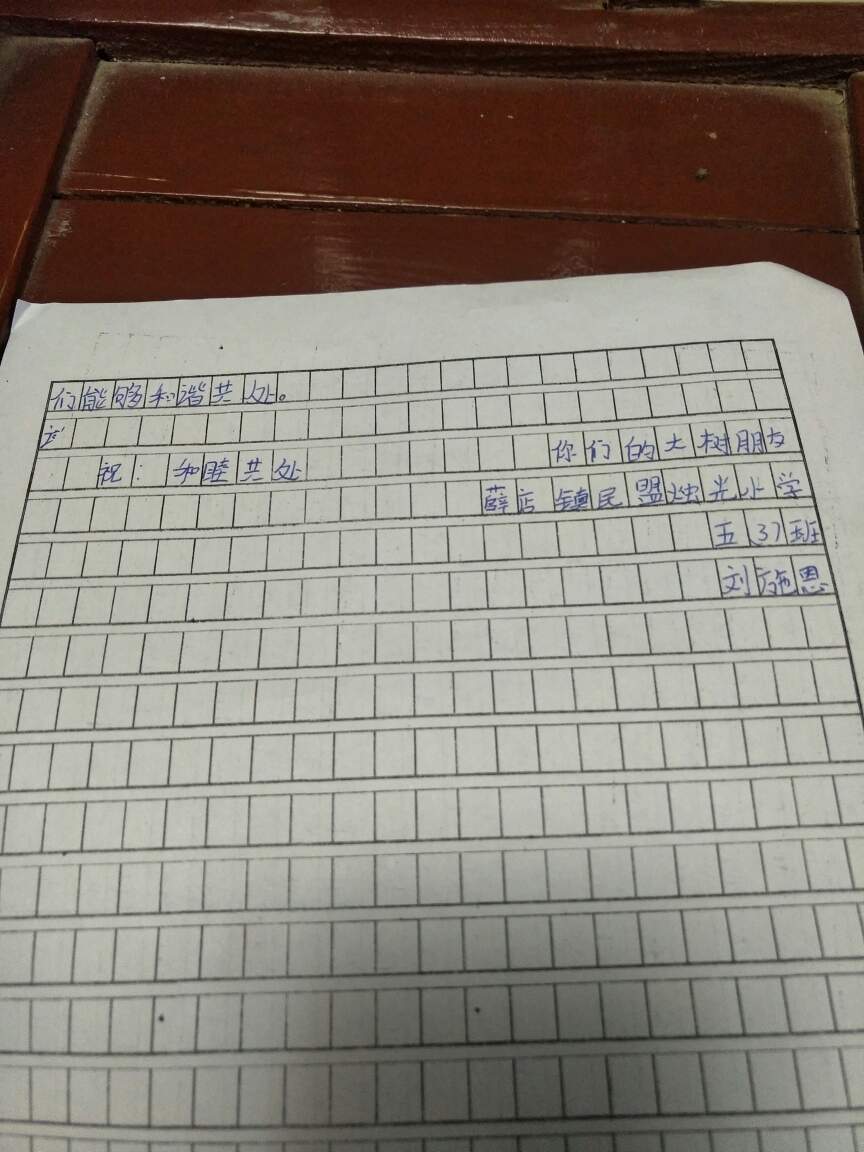 们能够和谐共处。
你们的大树朋友
祝：和睦共处
薛店镇民盟烛光小学
五（3）班
刘施恩